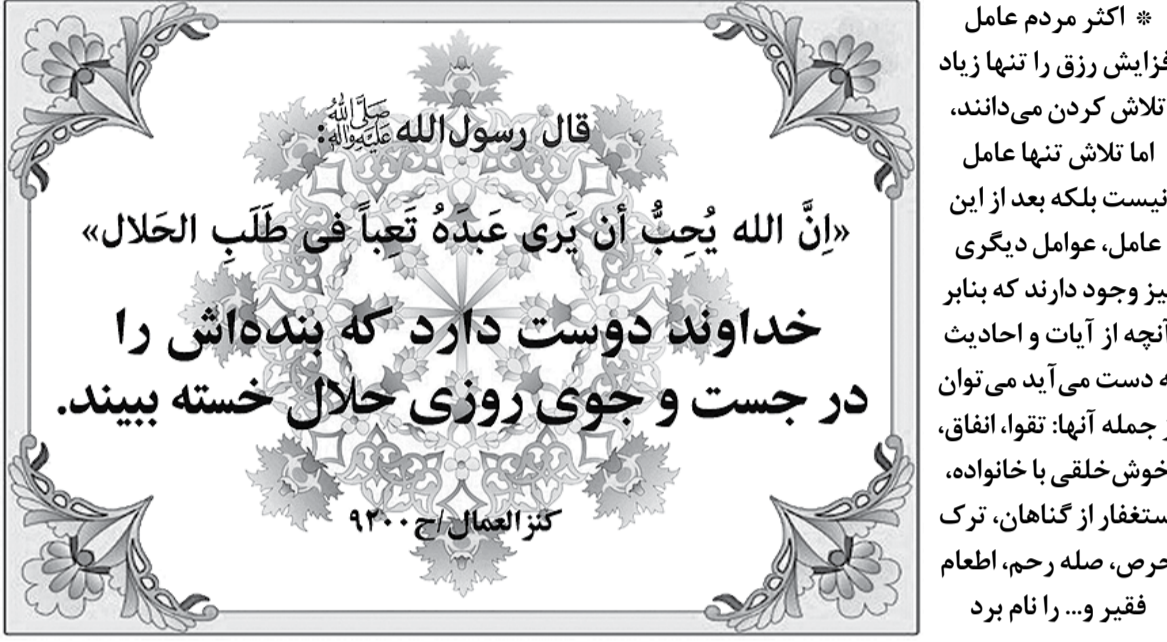 * اکثر مردم عامل
فزایش رزق را تنها زیاد
تلاش کردن می‌دانند،
اما تلاش تنها عامل
نیست بلکه بعد از این
عامل، عوامل دیگری
یز وجود دارند که بنابر
آنچه از آیات و احادیث
ه دست می‌آید می‌توان
ز جمله آنها: تقوا، انفاق،
خوش‌خلقی با خانواده،
ستغفار از گناهان، ترک
حرص، صله رحم، اطعام
فقیر و... را نام برد
قال رسول‌الله صَلَّى اللهُ عَلَيْهِ وَآلِهِ:
«اِنَّ الله یُحِبُّ أن یَری عَبدَهُ تَعِباً فی طَلَبِ الحَلال»
خداوند دوست دارد که بنده‌اش را
در جست و جوی روزی حلال خسته ببیند.
کنزالعمال/ح۹۲۰۰